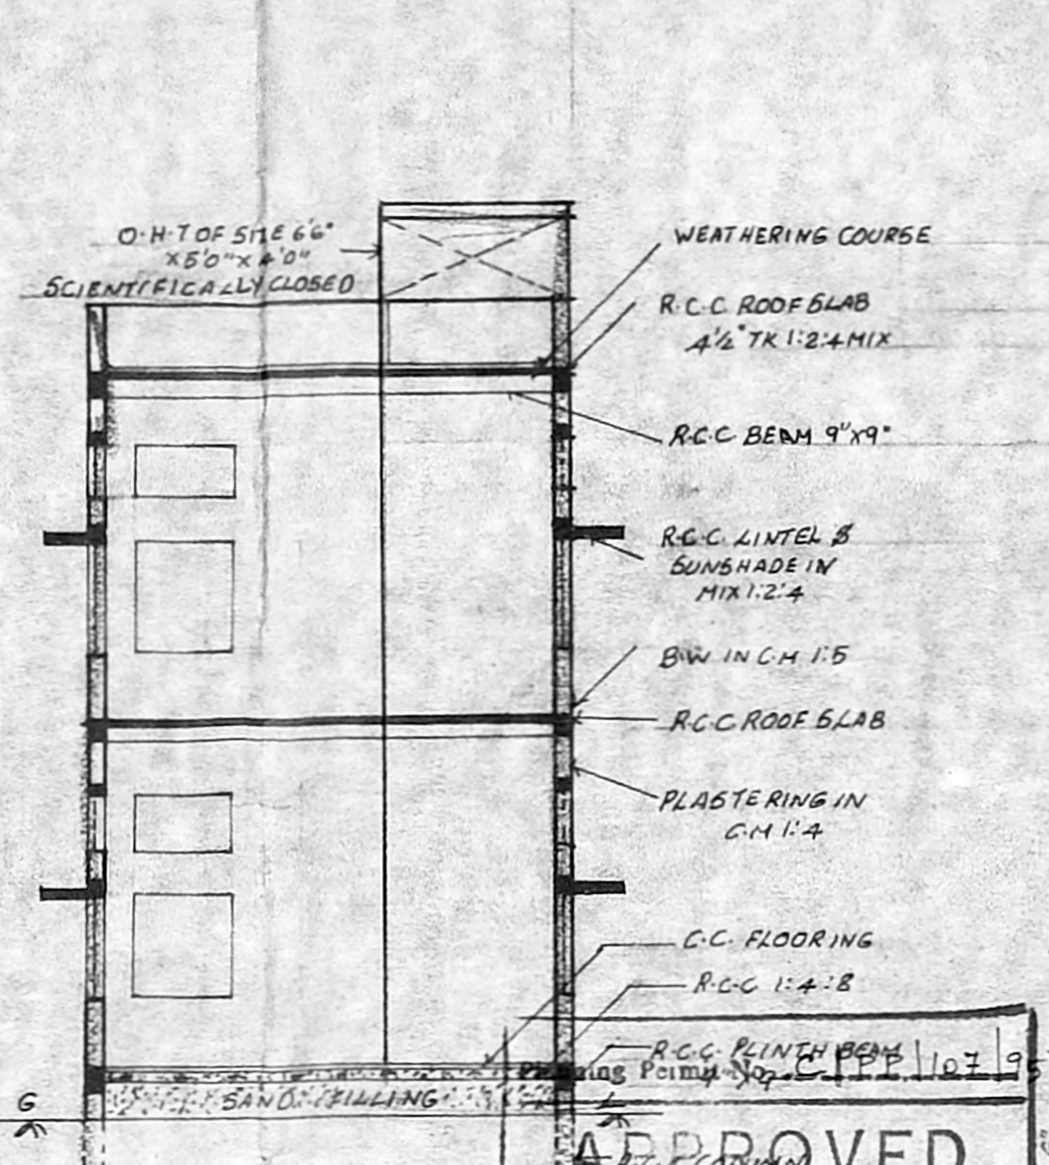 O.H.T OF SIZE 6'6"
x 5'0" x 4'0"
SCIENTIFICALLY CLOSED
WEATHERING COURSE
R.C.C. ROOF SLAB
4½" TK 1:2:4 MIX
R.C.C. BEAM 9"x9"
R.C.C. LINTEL &
SUNSHADE IN
MIX 1:2:4
B.W IN C.M 1:5
R.C.C ROOF SLAB
PLASTERING IN
C.M 1:4
C.C. FLOORING
R.C.C 1:4:8
R.C.C. PLINTH BEAM
Planning Permit No. C/PP/107/95
SAND FILLING
G
L
APPROVED